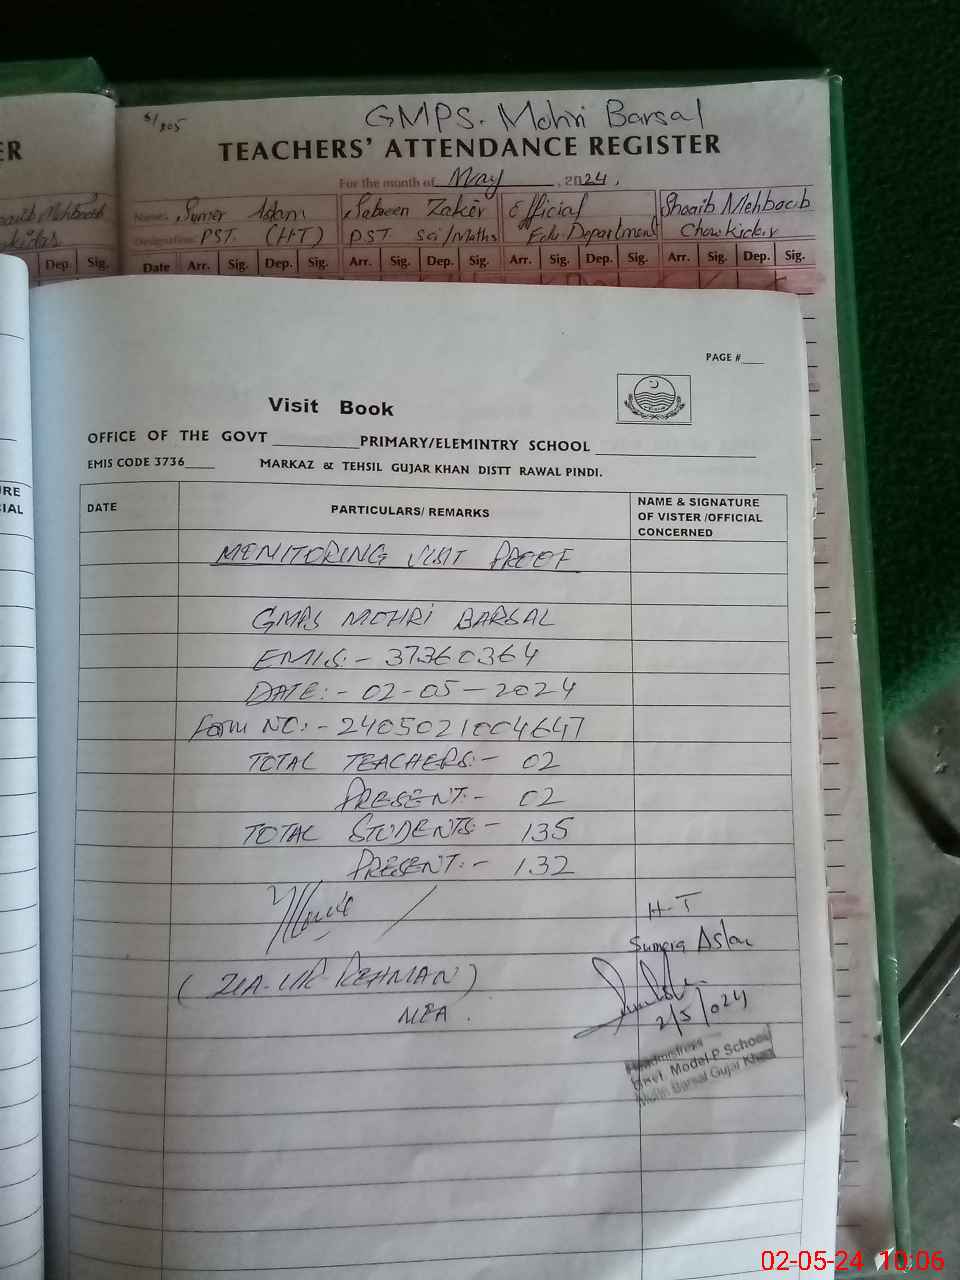 5/205
GMPS. Mohri Barsal
ER
TEACHERS' ATTENDANCE REGISTER
For the month of May, 2024,
Name: Sumer Aslam Sabeen Zaker Official Shoaib Mehboob
Designation: PST. (HT) PST Sci/Maths Edu. Department Chowkider
Dep. Sig. Date Arr. Sig. Dep. Sig. Arr. Sig. Dep. Sig. Arr. Sig. Dep. Sig. Arr. Sig. Dep. Sig.
PAGE #___
Visit Book
OFFICE OF THE GOVT __________PRIMARY/ELEMINTRY SCHOOL ____________________
EMIS CODE 3736____ MARKAZ & TEHSIL GUJAR KHAN DISTT RAWAL PINDI.
DATE
PARTICULARS/ REMARKS
NAME & SIGNATURE
OF VISTER /OFFICIAL
CONCERNED
MENITORING VISIT PROOF
GMPS MOHRi BARSAL
EMIS:- 37360364
DATE:- 02-05-2024
Form NO:- 2405021004647
TOTAL TEACHERS:- 02
PRESENT:- 02
TOTAL STUDENTS:- 135
PRESENT:- 132
(ZIA-UR-REHMAN)
MEA.
H-T
Sumera Aslam
2/5/024
Headmistress
Govt. Model P School
Mohri Barsal Gujar Khan
02-05-24 10:06